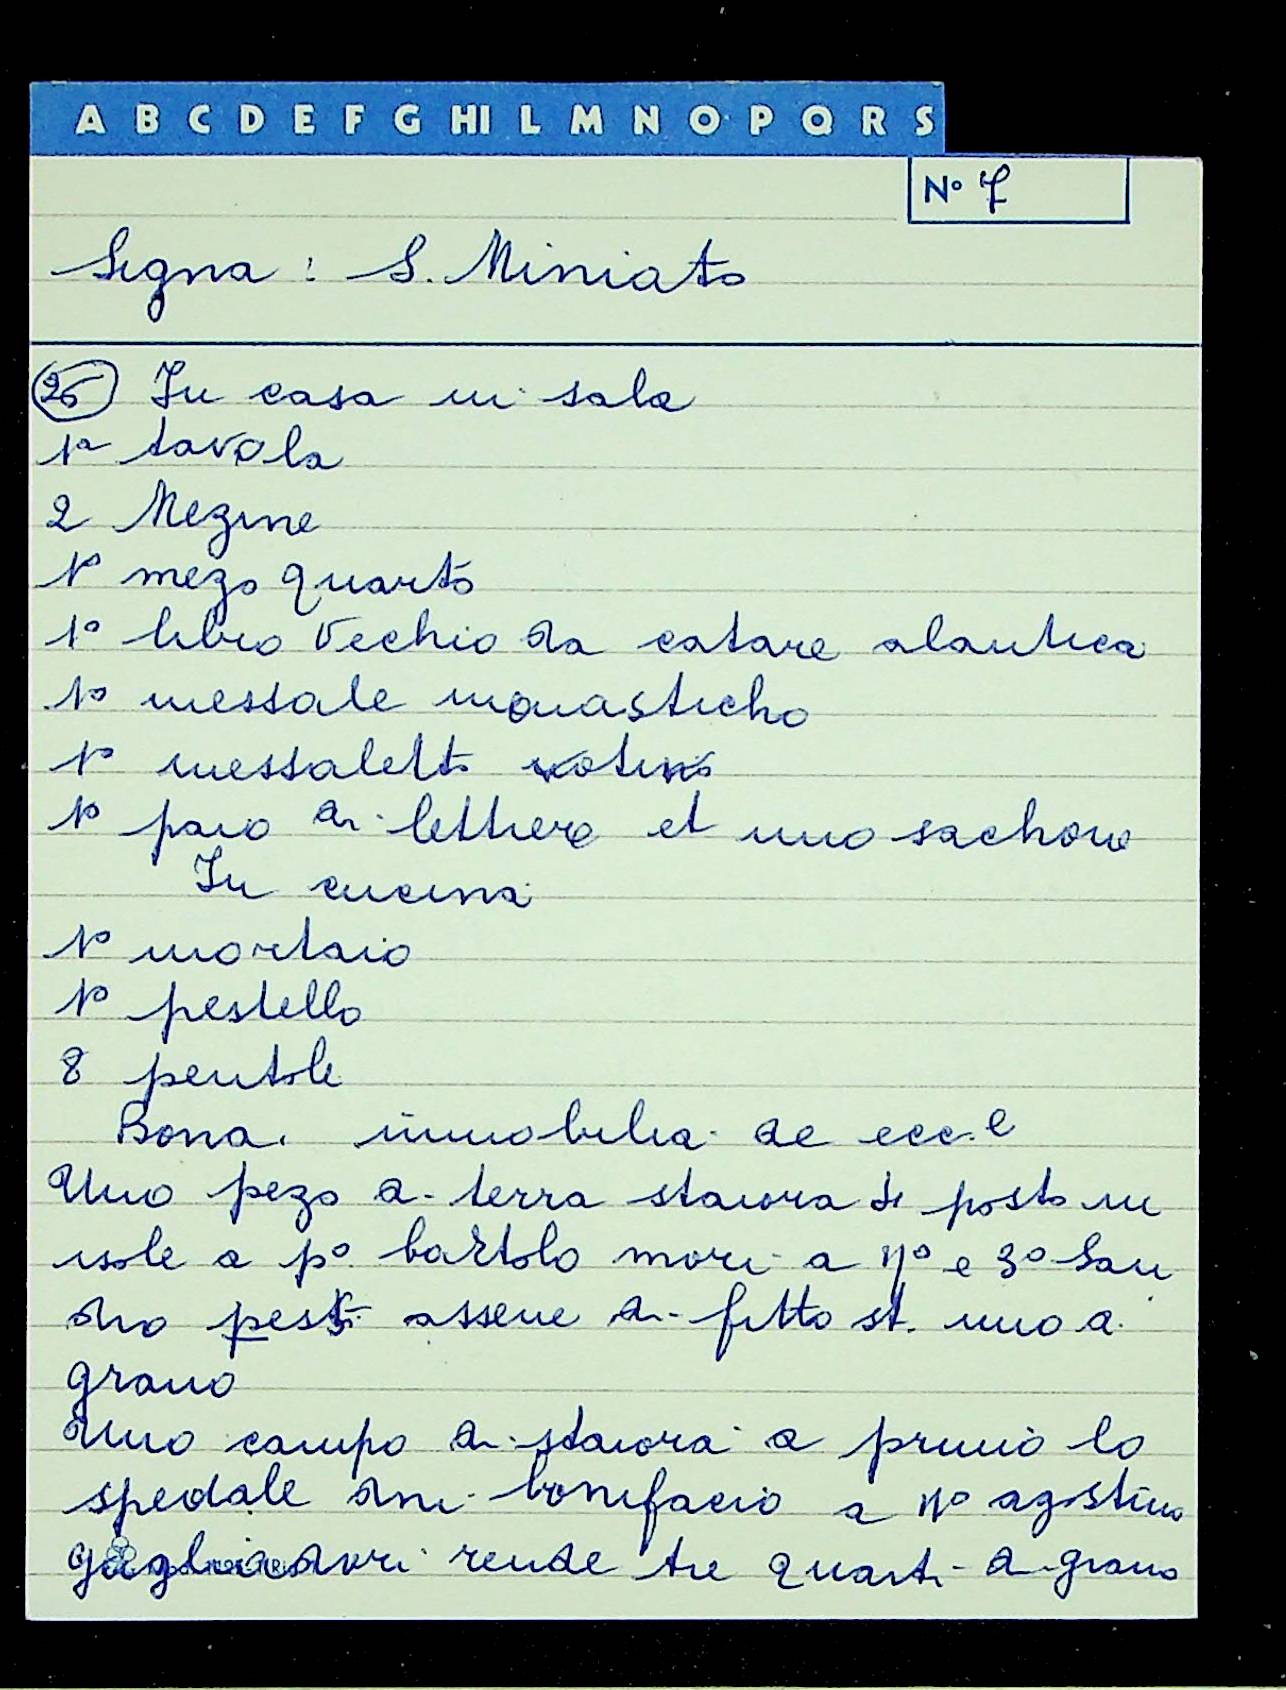 A B C D E F G HI L M N O P Q R S
N° 7
Segna : S. Miniato
26 In casa in sala
1ª tavola
2 Mezine
1° mezo quarto
1° libro vechio da catare alantica
1° messale monasticho
1° messaletto votivo
1° paio di lettiere et uno sachone
In cucina
1° mortaio
1° pestello
8 pentole
Bona immobilia de ecc.e
Uno pezo di terra staiora posto in
isole a p° bartolo mori a 11° e 3° San
dro assene di fitto st. uno di
grano
Uno campo di staiora a primo lo
spedale di bonifacio a 11° agostino
rende tre quarti di grano